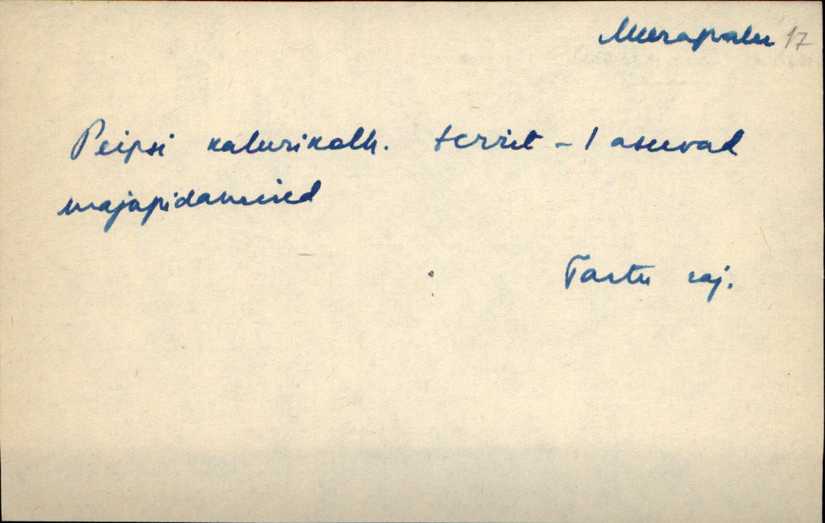 Meerapalu 17
Peipsi kalurikolh. territ-l asuvad
majapidamised
Tartu raj.